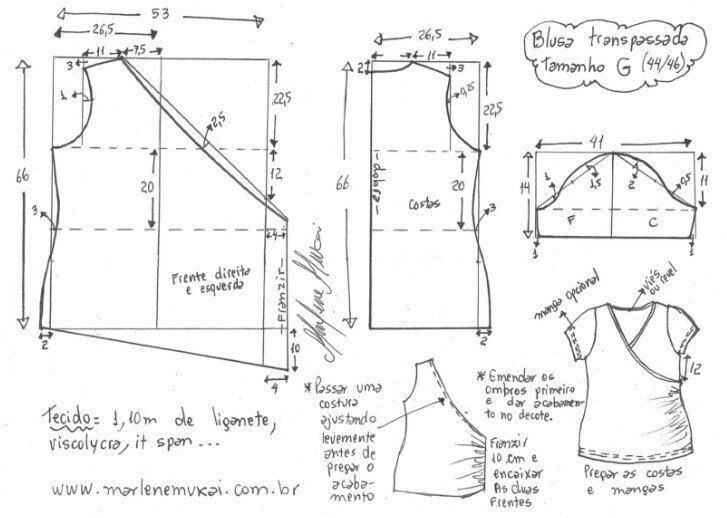 53
26,5
11
7,5
3
1
2,5
22,5
66
20
12
3
4
Frente direita
e esquerda
-Franzir-
2
10
4
Marlene Mukai
26,5
11
2
3
0,25
22,5
66
-dobra-
20
costas
3
2
Blusa transpassada
Tamanho G (44/46)
41
14
1
1,5
2
0,5
11
F
C
1
1
manga opcional
viés
ou revel
12
Tecido = 1,10m de liganete,
viscolycra, it span ...
www.marlenemukai.com.br
* Passar uma
costura
ajustando
levemente
antes de
pregar o
acaba-
mento
* Emendar os
ombros primeiro
e dar acabamen-
to no decote.
Franzir
10 cm e
encaixar
As duas
frentes
Pregar as costas
e mangas